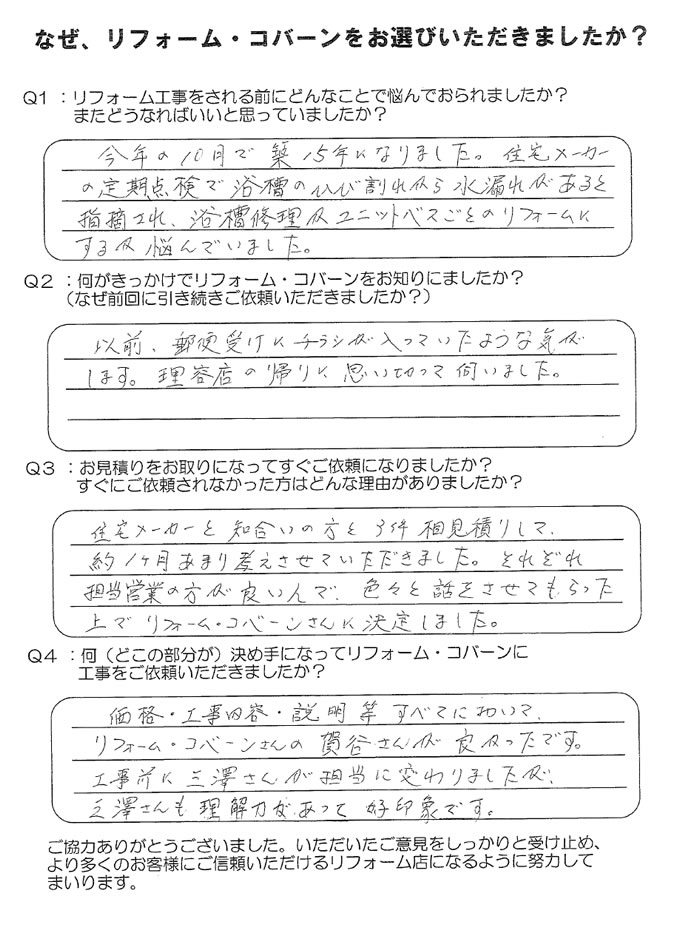 なぜ、リフォーム・コバーンをお選びいただきましたか？
Q1 ：リフォーム工事をされる前にどんなことで悩んでおられましたか？
またどうなればいいと思っていましたか？
今年の10月で築15年になりました。住宅メーカー
の定期点検で浴槽のひび割れから水漏れがあると
指摘され、浴槽修理かユニットバスごとのリフォームに
するか悩んでいました。
Q2 ：何がきっかけでリフォーム・コバーンをお知りにましたか？
（なぜ前回に引き続きご依頼いただきましたか？）
以前、郵便受けにチラシが入っていたような気が
します。理容店の帰りに思い切って伺いました。
Q3 ：お見積りをお取りになってすぐご依頼になりましたか？
すぐにご依頼されなかった方はどんな理由がありましたか？
住宅メーカーと知合いの方と3件相見積りして、
約1ヶ月あまり考えさせていただきました。それぞれ
担当営業の方が良いんで、色々と話をさせてもらった
上でリフォーム・コバーンさんに決定しました。
Q4 ：何（どこの部分が）決め手になってリフォーム・コバーンに
工事をご依頼いただきましたか？
価格・工事内容・説明等すべてにおいて、
リフォーム・コバーンさんの賀谷さんが良かったです。
工事前に三澤さんが担当に変わりましたが、
三澤さんも理解力があって好印象です。
ご協力ありがとうございました。いただいたご意見をしっかりと受け止め、
より多くのお客様にご信頼いただけるリフォーム店になるように努力して
まいります。